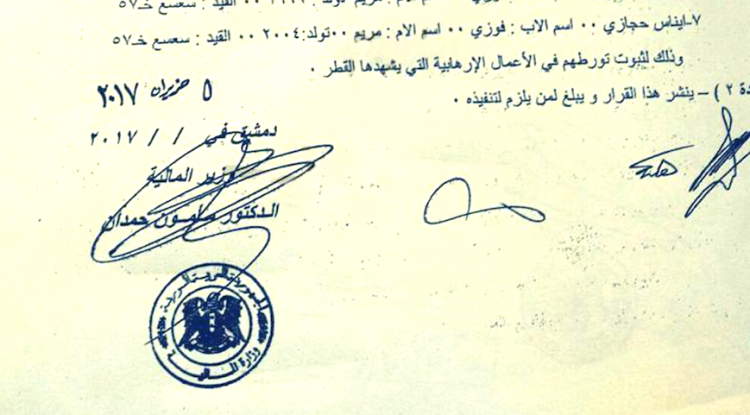 اسم الام : مريم
٧-ايناس حجازي ٠٠ اسم الاب : فوزي ٠٠ اسم الام : مريم ٠٠تولد:٢٠٠٤ ٠٠ القيد : سعسع خـ٥٧
وذلك لثبوت تورطهم في الأعمال الإرهابية التي يشهدها القطر ٠
دة ٢ ) – ينشر هذا القرار و يبلغ لمن يلزم لتنفيذه ٠
٥ حزيران ٢٠١٧
دمشق في / / ٢٠١٧
وزير المالية
الدكتور مأمون حمدان
الجمهورية العربية السورية
وزارة المالية